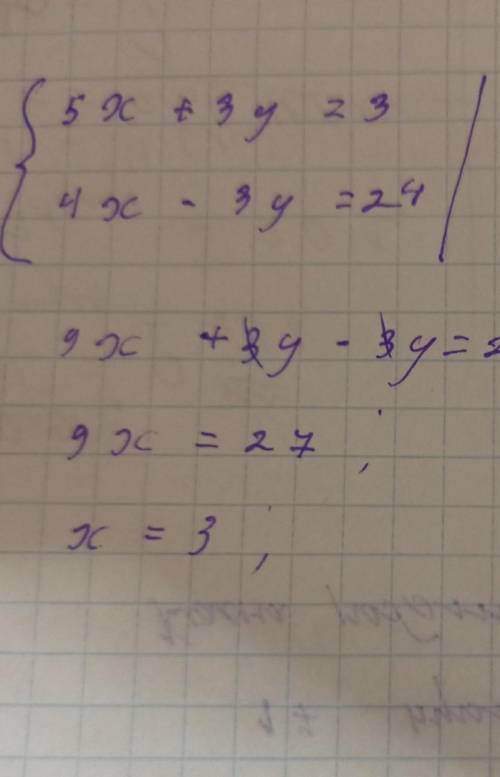 5x + 3y = 3
4x - 3y = 24
9x + 3y - 3y = 2
9x = 27 ;
x = 3 ;